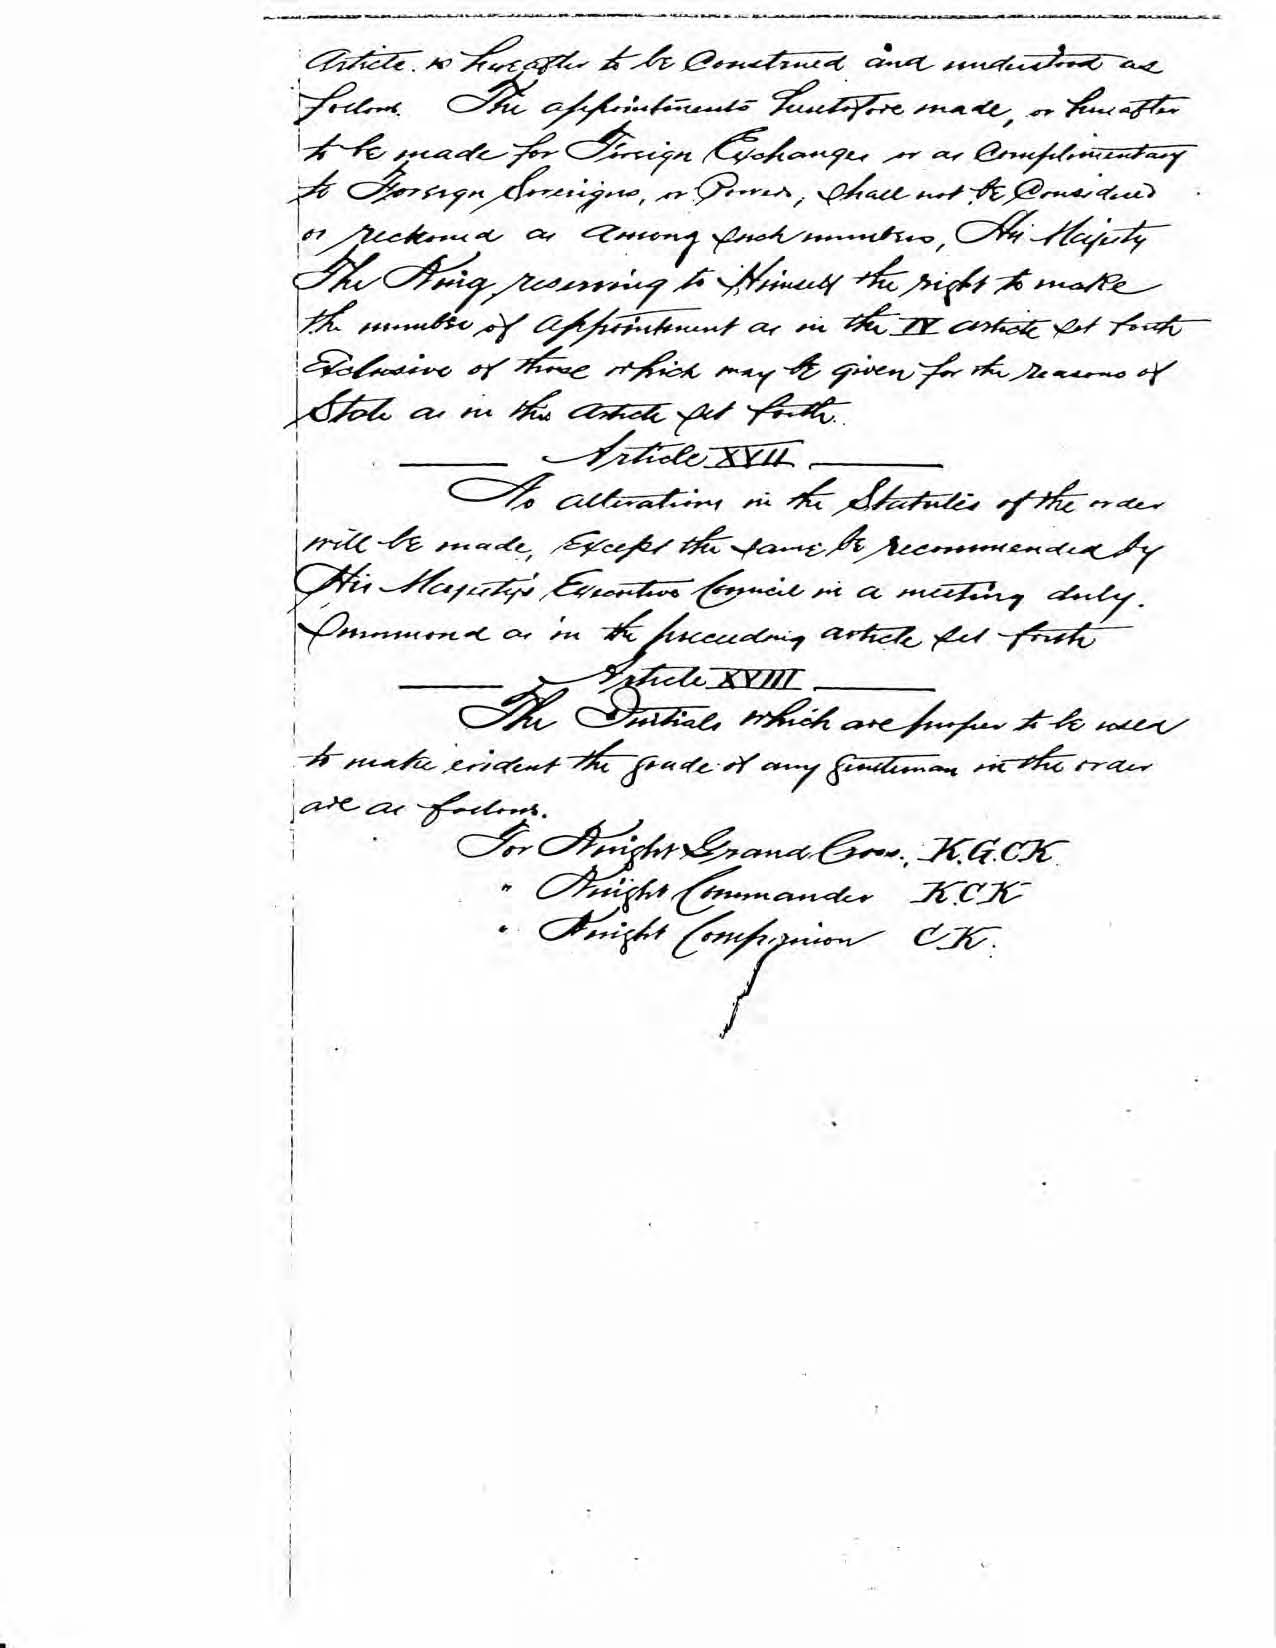 Article is hereafter to be Construed and understood as
follows. The appointments heretofore made, or hereafter
to be made for Foreign Exchanges or as Complimentary
to Foreign Sovereigns, or Powers, shall not be Considered
or reckoned as among such numbers, His Majesty
The King, reserving to Himself the right to make
the number of appointment as in the IV article set forth
Exclusive of those which may be given for the reasons of
State as in this article set forth.
Article XVII
No alterations in the Statutes of the order
will be made, Except the same be recommended by
His Majesty's Executive Council in a meeting duly.
Summoned as in the preceeding article set forth
Article XVIII
The Initials which are proper to be used
to make evident the grade of any gentleman in the order
are as follows.
For Knight Grand Cross., K.G.C.K.
" Knight Commander K.C.K
" Knight Companion C.K.